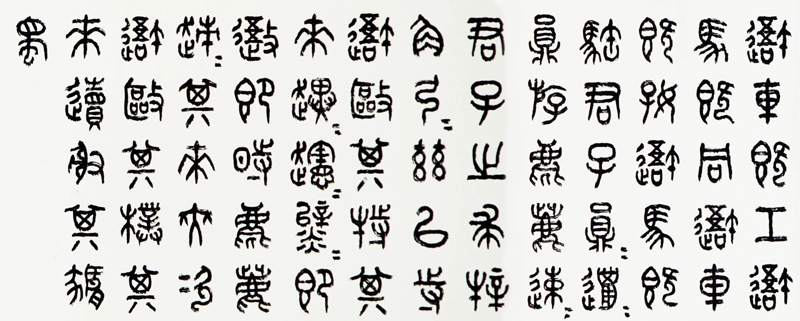 吾車既工吾
馬既同吾車
既好吾馬既
君子員=邋=
員斿麀鹿速=
君子之求
角弓=茲以寺
吾敺其特其
來趩=即
即時麀鹿
趚=其來大次
吾敺其樸其
來射其豜
蜀